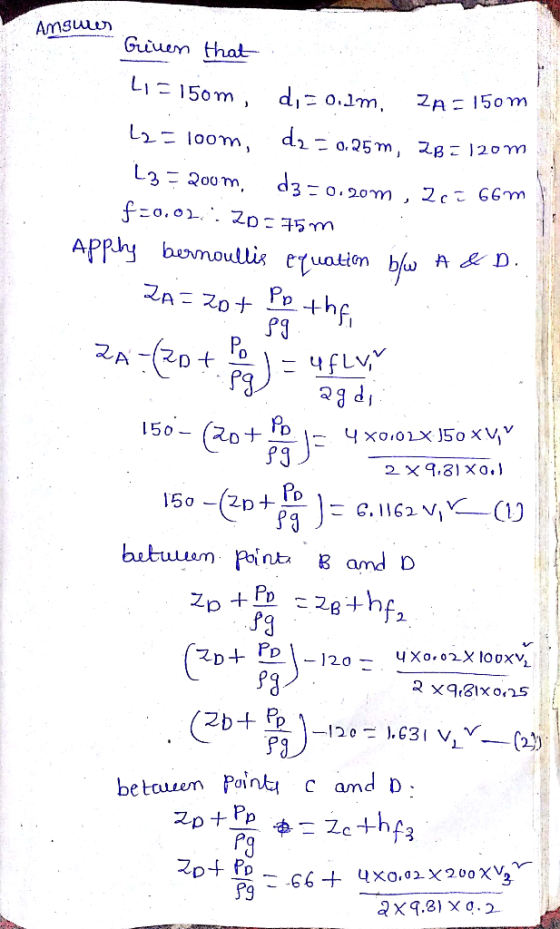 Answer
Given that
L1 = 150m, d1 = 0.1m, ZA = 150m
L2 = 100m, d2 = 0.25m, ZB = 120m
L3 = 200m, d3 = 0.20m, Zc = 66m
f = 0.02 ∴ ZD = 75m
Apply bernoullis equation b/w A & D.
ZA = ZD + PD/ρg + hf1
ZA - (ZD + PD/ρg) = 4fLV1²/2gd1
150 - (ZD + PD/ρg) = 4×0.02×150×V1²/2×9.81×0.1
150 - (ZD + PD/ρg) = 6.1162 V1² — (1)
between points B and D
ZD + PD/ρg = ZB + hf2
(ZD + PD/ρg) - 120 = 4×0.02×100×V2²/2×9.81×0.25
(ZD + PD/ρg) - 120 = 1.631 V2² — (2)
between points C and D:
ZD + PD/ρg = Zc + hf3
ZD + PD/ρg = 66 + 4×0.02×200×V3²/2×9.81×0.2